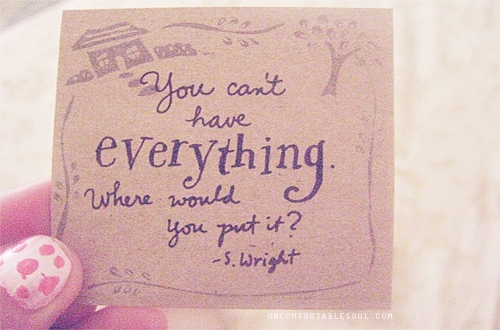 You can't
have
everything.
Where would
you put it?
-S. Wright
UNCOMFORTABLESOUL.COM